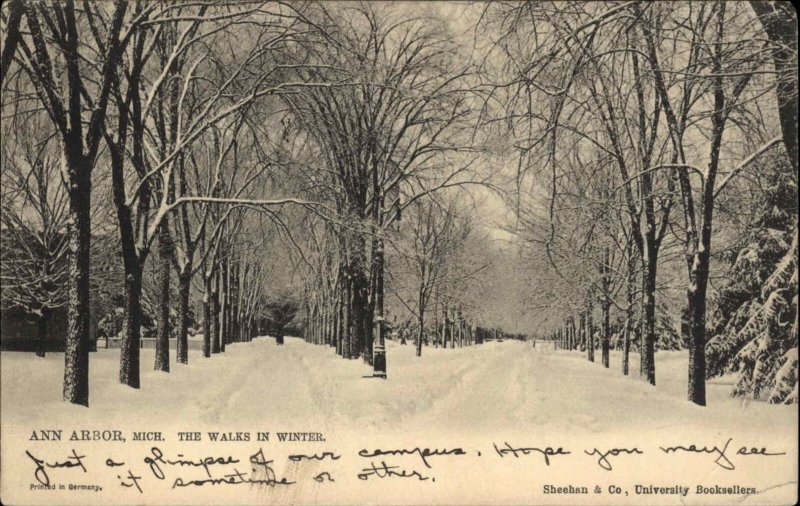 ANN ARBOR, MICH. THE WALKS IN WINTER.
Just a glimpse of our campus. Hope you may see
it sometime or other.
Printed in Germany.
Sheehan & Co, University Booksellers.